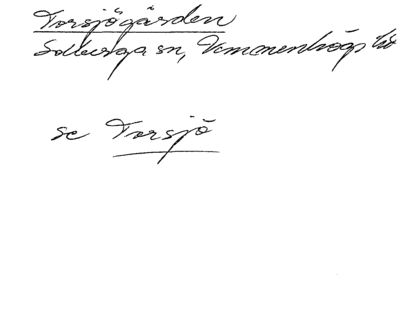 Torsjögården
Solberga sn, Vemmenhögs hd
se Torsjö